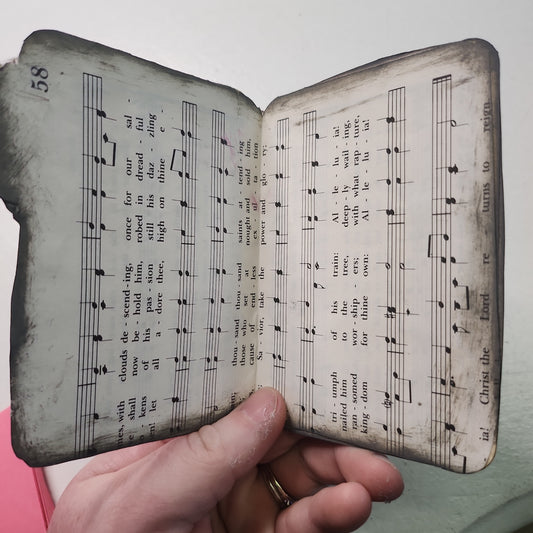 58
with clouds de - scend - ing, once for our sal -
shall now be - hold him, robed in dread - ful
kens of his pas - sion still his daz - zling
let all a - dore thee, high on thine e -
thou - sand thou - sand saints at - tend - ing
those who set at nought and sold him,
cause of end - less ex - ul - ta - tion
Sa - vior, take the power and glo - ry;
tri - umph of his train: Al - le - lu - ia!
nailed him to the tree, deep - ly wail - ing,
ran - somed wor - ship - ers; with what rap - ture,
king - dom for thine own: Al - le - lu - ia!
ia! Christ the Lord re turns to reign